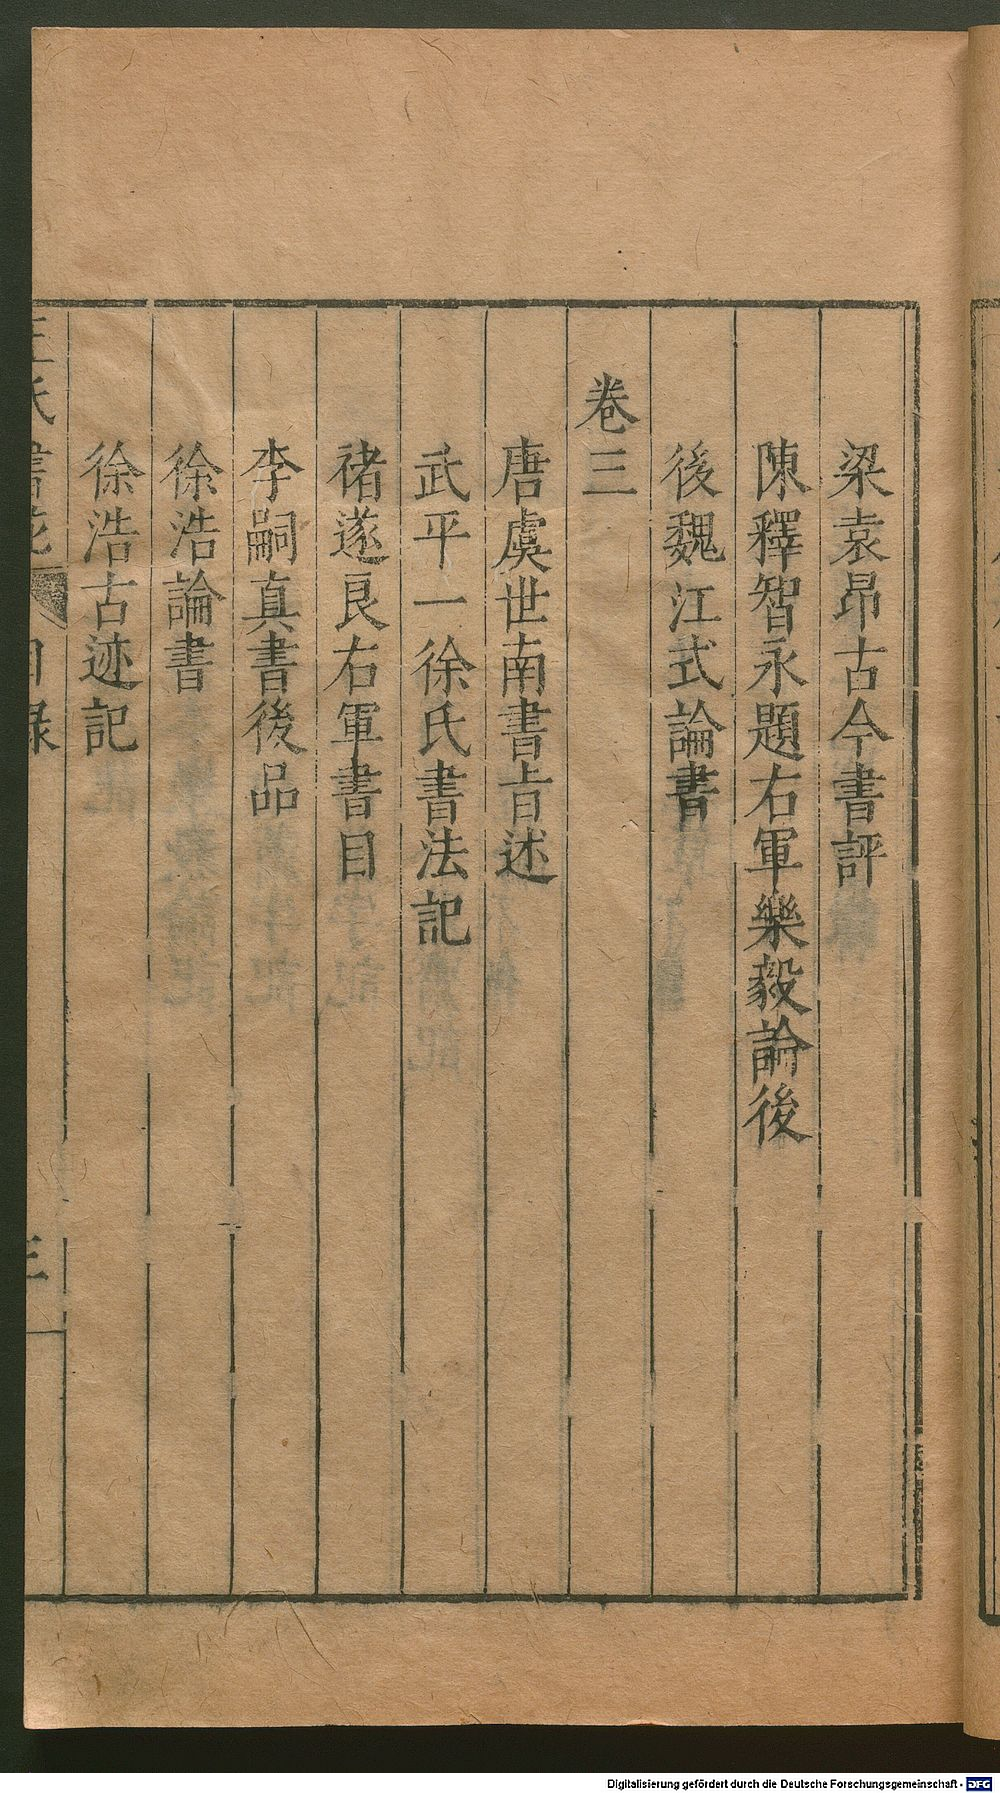 梁袁昂古今書評
陳釋智永題右軍樂毅論後
後魏江式論書
卷三
唐虞世南書旨述
武平一徐氏書法記
禇遂良右軍書目
李嗣真書後品
徐浩論書
徐浩古迹記
王氏書苑 目録 三
Digitalisierung gefördert durch die Deutsche Forschungsgemeinschaft - DFG